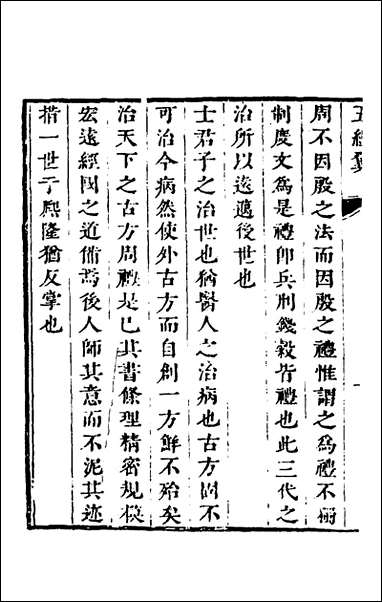 五經翼
周不因殷之法而因殷之禮惟謂之為禮不獨
制度文為是禮卽兵刑錢穀皆禮也此三代之
治所以遠邁後世也
士君子之治世也猶醫人之治病也古方固不
可治今病然使外古方而自創一方鮮不殆矣
治天下之古方周禮是已其書條理精密規模
宏遠經國之道備焉後人師其意而不泥其迹
措一世于熙隆猶反掌也